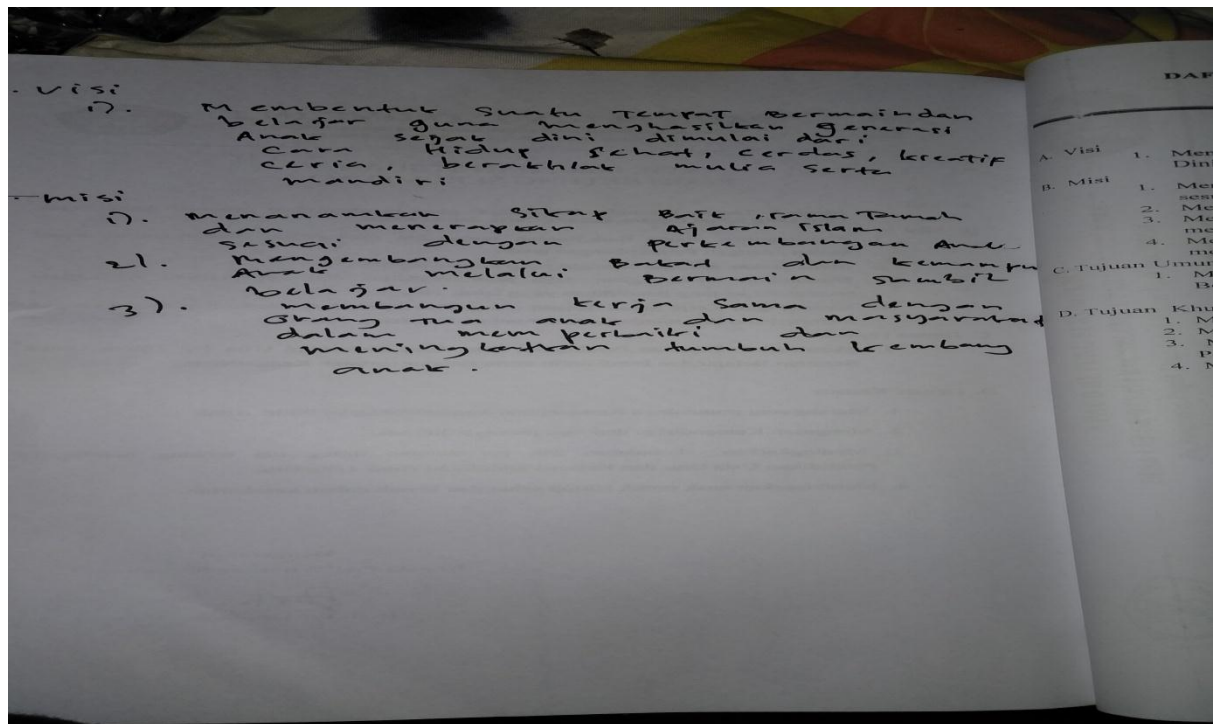 . Visi
1). Membentuk Suatu Tempat Bermain dan
belajar guna menghasilkan generasi
Anak sejak dini dimulai dari
Cara Hidup Sehat, Cerdas, kreatif
ceria, berakhlak mulia serta
mandiri
misi
1). menanamkan Sikap Baik, rama Tamah
dan menerapkan Ajaran Islam
Sesuai dengan perkembangan Anak
2). Mengembangkan Bakat dan kemampu
Anak melalui Bermain Sambil
belajar.
3). membangun kerja Sama dengan
Orang Tua anak dan masyarakat
dalam memperbaiki dan
meningkatkan tumbuh kembang
anak.
DAF
A. Visi
1. Men
Dini
B. Misi
1. Me
sesu
2. Me
3. Me
me
4. Me
me
C. Tujuan Umum
1. M
Be
D. Tujuan Khu
1. M
2. M
3. M
P
4. M